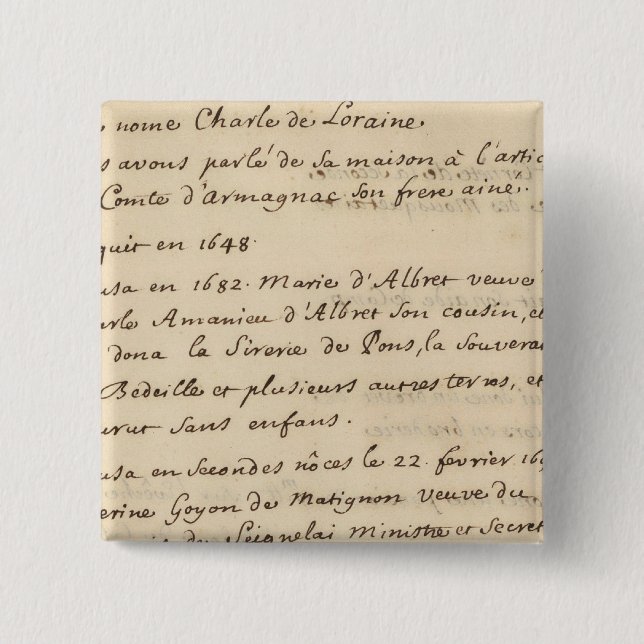 nome Charle de Loraine.
s avous parlé de sa maison à l'artic
Comte d'Armagnac son frere ainé.
quit en 1648.
usa en 1682. Marie d'Albret veuve
rle Amanieu d'Albret son cousin, et
dona la Sirerie de Pons, la souvera
Bedeille et plusieurs autres terres, et
urut sans enfans.
usa en secondes nôces le 22. fevrier 16
erine Goyon de Matignon veuve du
de Seignelai Ministre et Secret